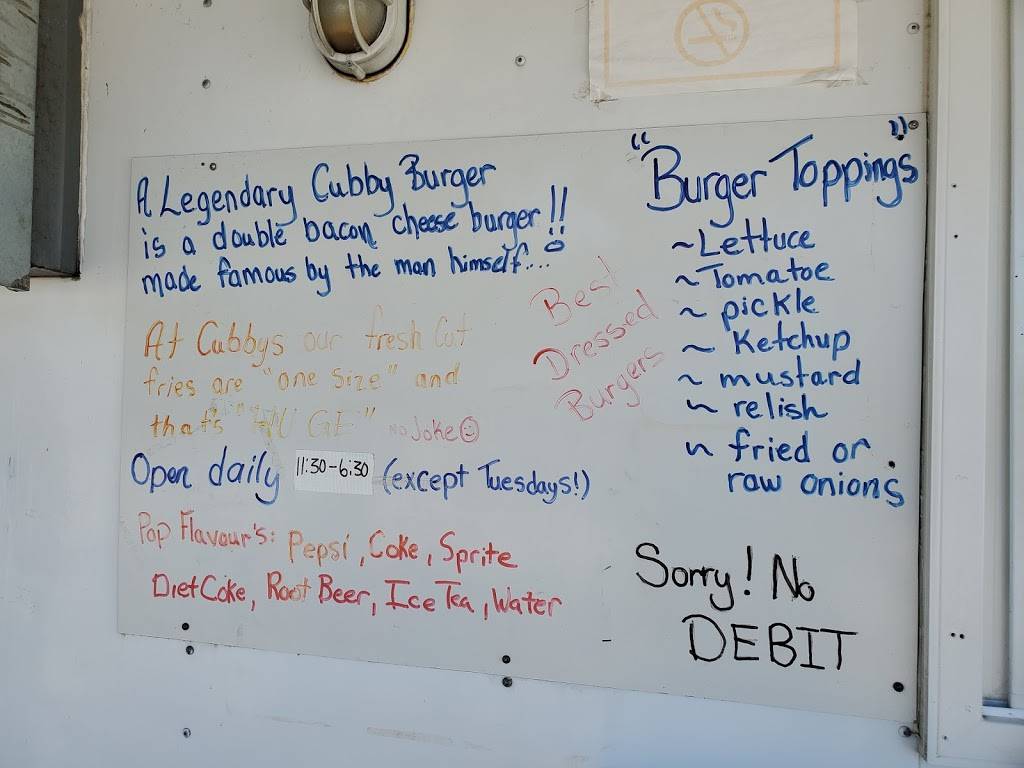 A Legendary Cubby Burger
is a double bacon cheese burger!!
made famous by the man himself...
At Cubbys our fresh Cut
fries are "one size" and
that's "HUGE" no Joke
Open daily 11:30-6:30 (except Tuesdays!)
Pop Flavour's: Pepsi, Coke, Sprite
Diet Coke, Root Beer, Ice Tea, Water
Best
Dressed
Burgers
"Burger Toppings"
~Lettuce
~Tomatoe
~ pickle
~ Ketchup
~ mustard
~ relish
~ fried or
raw onions
Sorry! No
DEBIT